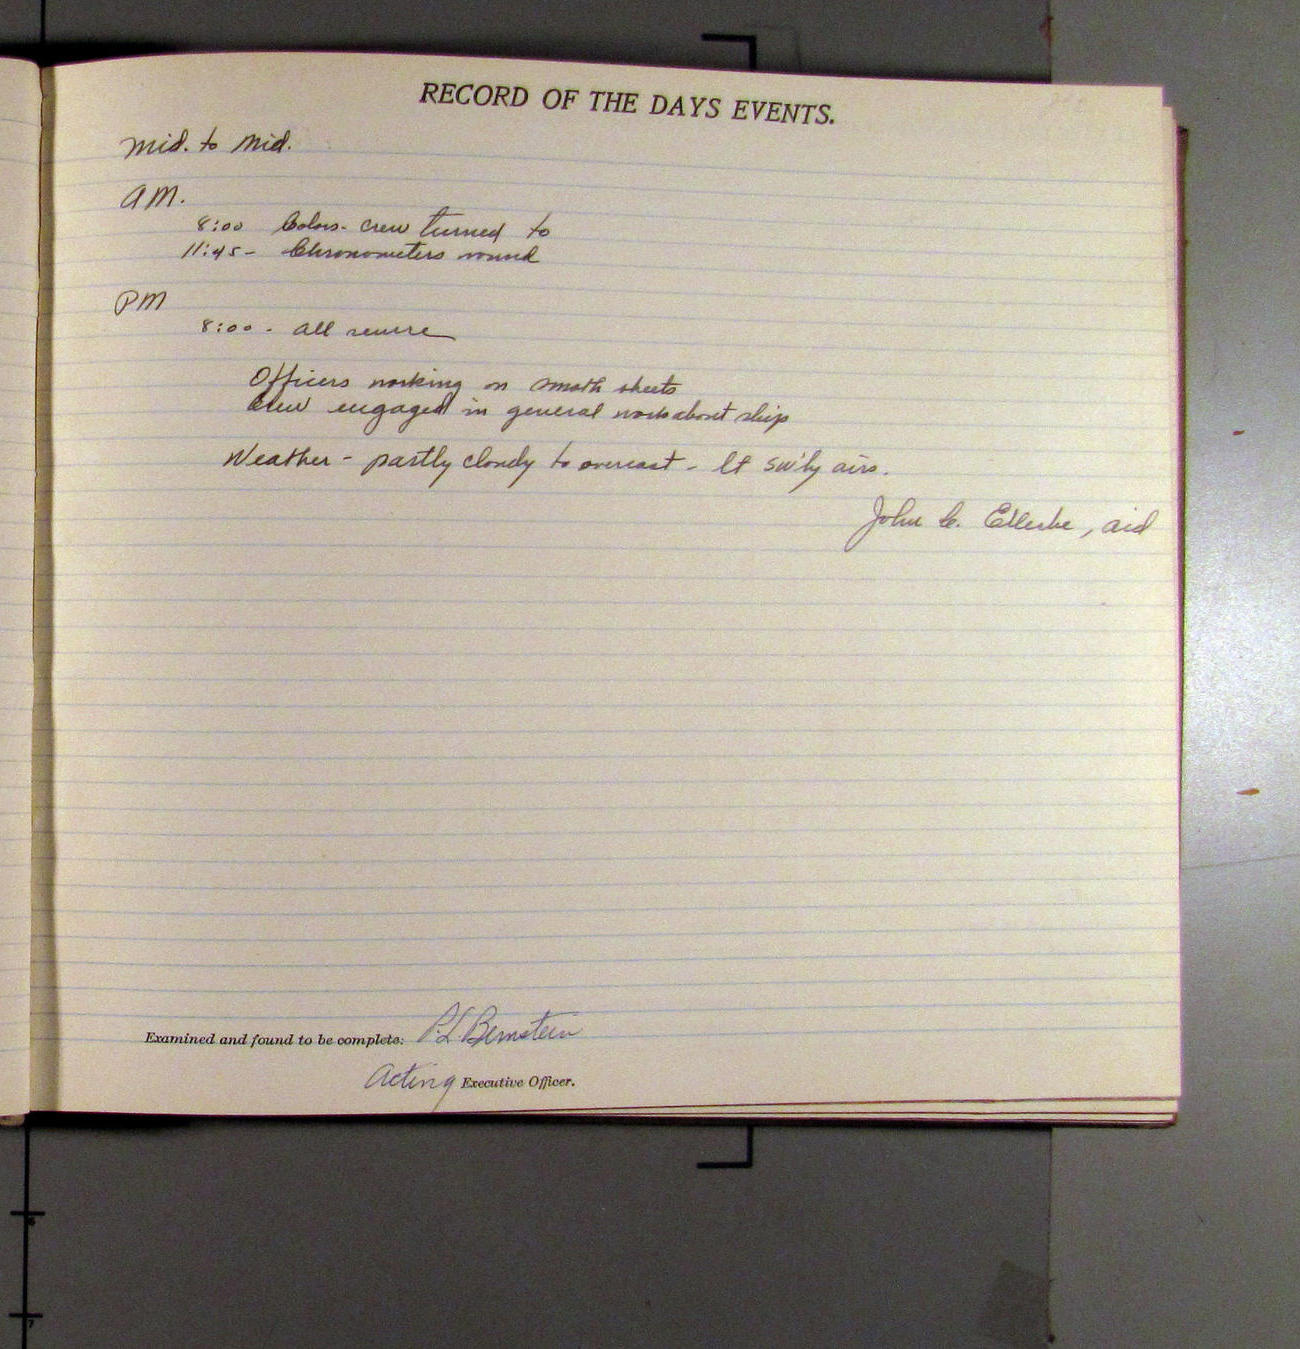 RECORD OF THE DAYS EVENTS.
Mid. to Mid.
AM.
8:00 Colors - crew turned to
11:45 - Chronometers wound
PM
8:00 - all secure
Officers working on smooth sheets
Crew engaged in general work about ship
Weather - partly cloudy to overcast - lt sw'ly airs.
John C. Ellerbe, aid
Examined and found to be complete: P.L. Bernstein
Acting Executive Officer.
6
7